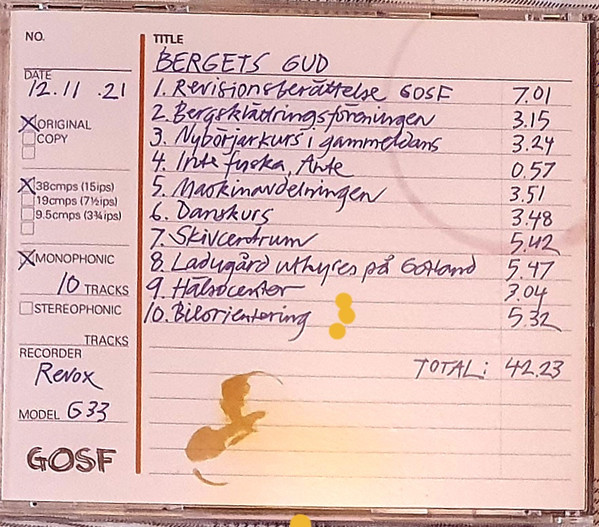 NO.
DATE
12.11 .21
ORIGINAL
COPY
38cmps (15ips)
19cmps (7½ips)
9.5cmps (3¾ips)
MONOPHONIC
10 TRACKS
STEREOPHONIC
TRACKS
RECORDER
Revox
MODEL G33
GOSF
TITLE
BERGETS GUD
1. Revisionsberättelse GOSF 7.01
2. Bergsklättringsföreningen 3.15
3. Nybörjarkurs i gammeldans 3.24
4. Inte fuska, Ante 0.57
5. Maskinavdelningen 3.51
6. Danskurs 3.48
7. Skivcentrum 5.42
8. Ladugård uthyres på Gotland 5.47
9. Hälsocenter 3.04
10. Bilorientering 5.32
TOTAL: 42.23